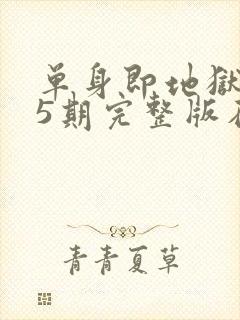 单身即地獄
5期完整版在
青青夏草